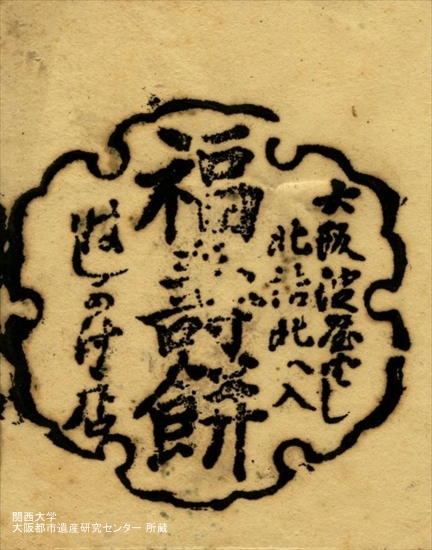 大阪淀屋ばし
北詰北へ入
福壽餅
関西大学
大阪都市遺産研究センター 所蔵